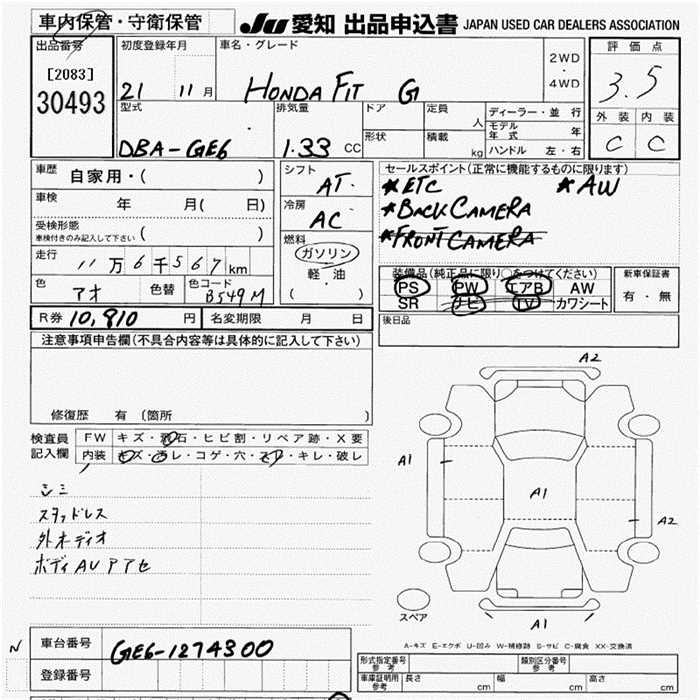 車内保管・守衛保管
JU 愛知 出品申込書 JAPAN USED CAR DEALERS ASSOCIATION
出品番号
[2083]
30493
初度登録年月
21 11月
車名・グレード
HONDA FIT G
2WD
・
4WD
評価点
3.5
外装 内装
C C
型式
DBA-GE6
排気量
1.33 CC
ドア
形状
定員 人
積載 kg
ディーラー・並 行
モデル年式 年
ハンドル 左・右
車歴 自家用・( )
車検 年 月( 日)
受検形態
車検付きのみ記入して下さい ( )
走行 11万6千567km
色 アオ 色替 色コード B549M
シフト AT
冷房 AC
燃料
ガソリン
軽・油
( )
セールスポイント(正常に機能するものに限ります)
*ETC *AW
*BACK CAMERA
*FRONT CAMERA
装備品(純正品に限り○をつけてください)
PS PW エアB AW
SR ナビ TV カワシート
新車保証書
有・無
後日品
R券 10,810 円 名変期限 月 日
注意事項申告欄(不具合内容等は具体的に記入して下さい)
修復歴 有 (箇所 )
検査員
記入欄
FW キズ・飛石・ヒビ割・リペア跡・X要
内装 キズ・汚レ・コゲ・穴・スレ・キレ・破レ
シミ
スタッドレス
外オーディオ
ボディAUアアセ
A2
A1
A1
A2
A1
スペア
A-キズ E-エクボ U-凹み W-補修跡 S-サビ C-腐食 XX-交換済
N
車台番号 GE6-1274300
登録番号
型式指定番号
参考
類別区分番号
参考
車庫証明用
参考
長さ cm 幅 cm 高さ cm